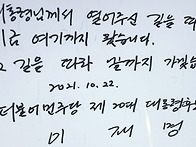 대통령님께서 열어주신 길을 따
지금 여기까지 왔습니다.
그 길을 따라 끝까지 가겠습
2021. 10. 22.
더불어민주당 제 20대 대통령후
이 재 명